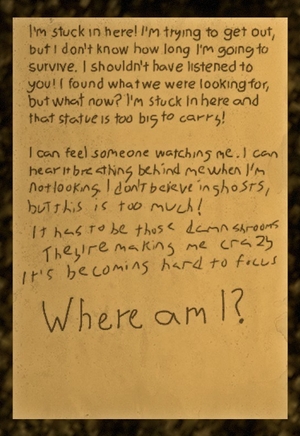 I'm stuck in here! I'm trying to get out,
but I don't know how long I'm going to
survive. I shouldn't have listened to
you! I found what we were looking for,
but what now? I'm stuck in here and
that statue is too big to carry!
I can feel someone watching me. I can
hear it breathing behind me when I'm
not looking. I don't believe in ghosts,
but this is too much!
It has to be those damn shrooms
They're making me crazy
It's becoming hard to focus
Where am I?